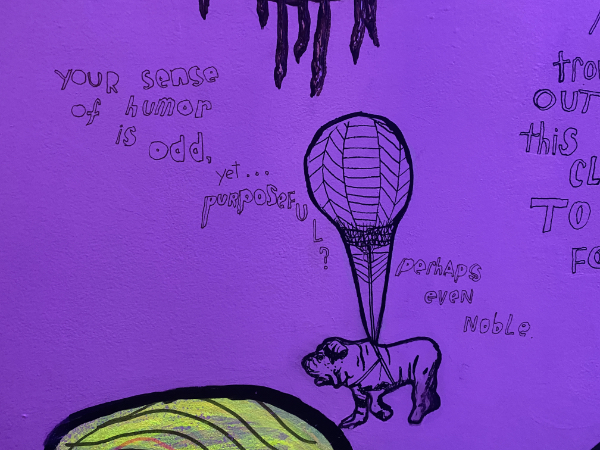 YOUR sense
of humor
is odd,
yet...
purposefu
L
?
perhaps
even
Noble.
OUT
this
TO